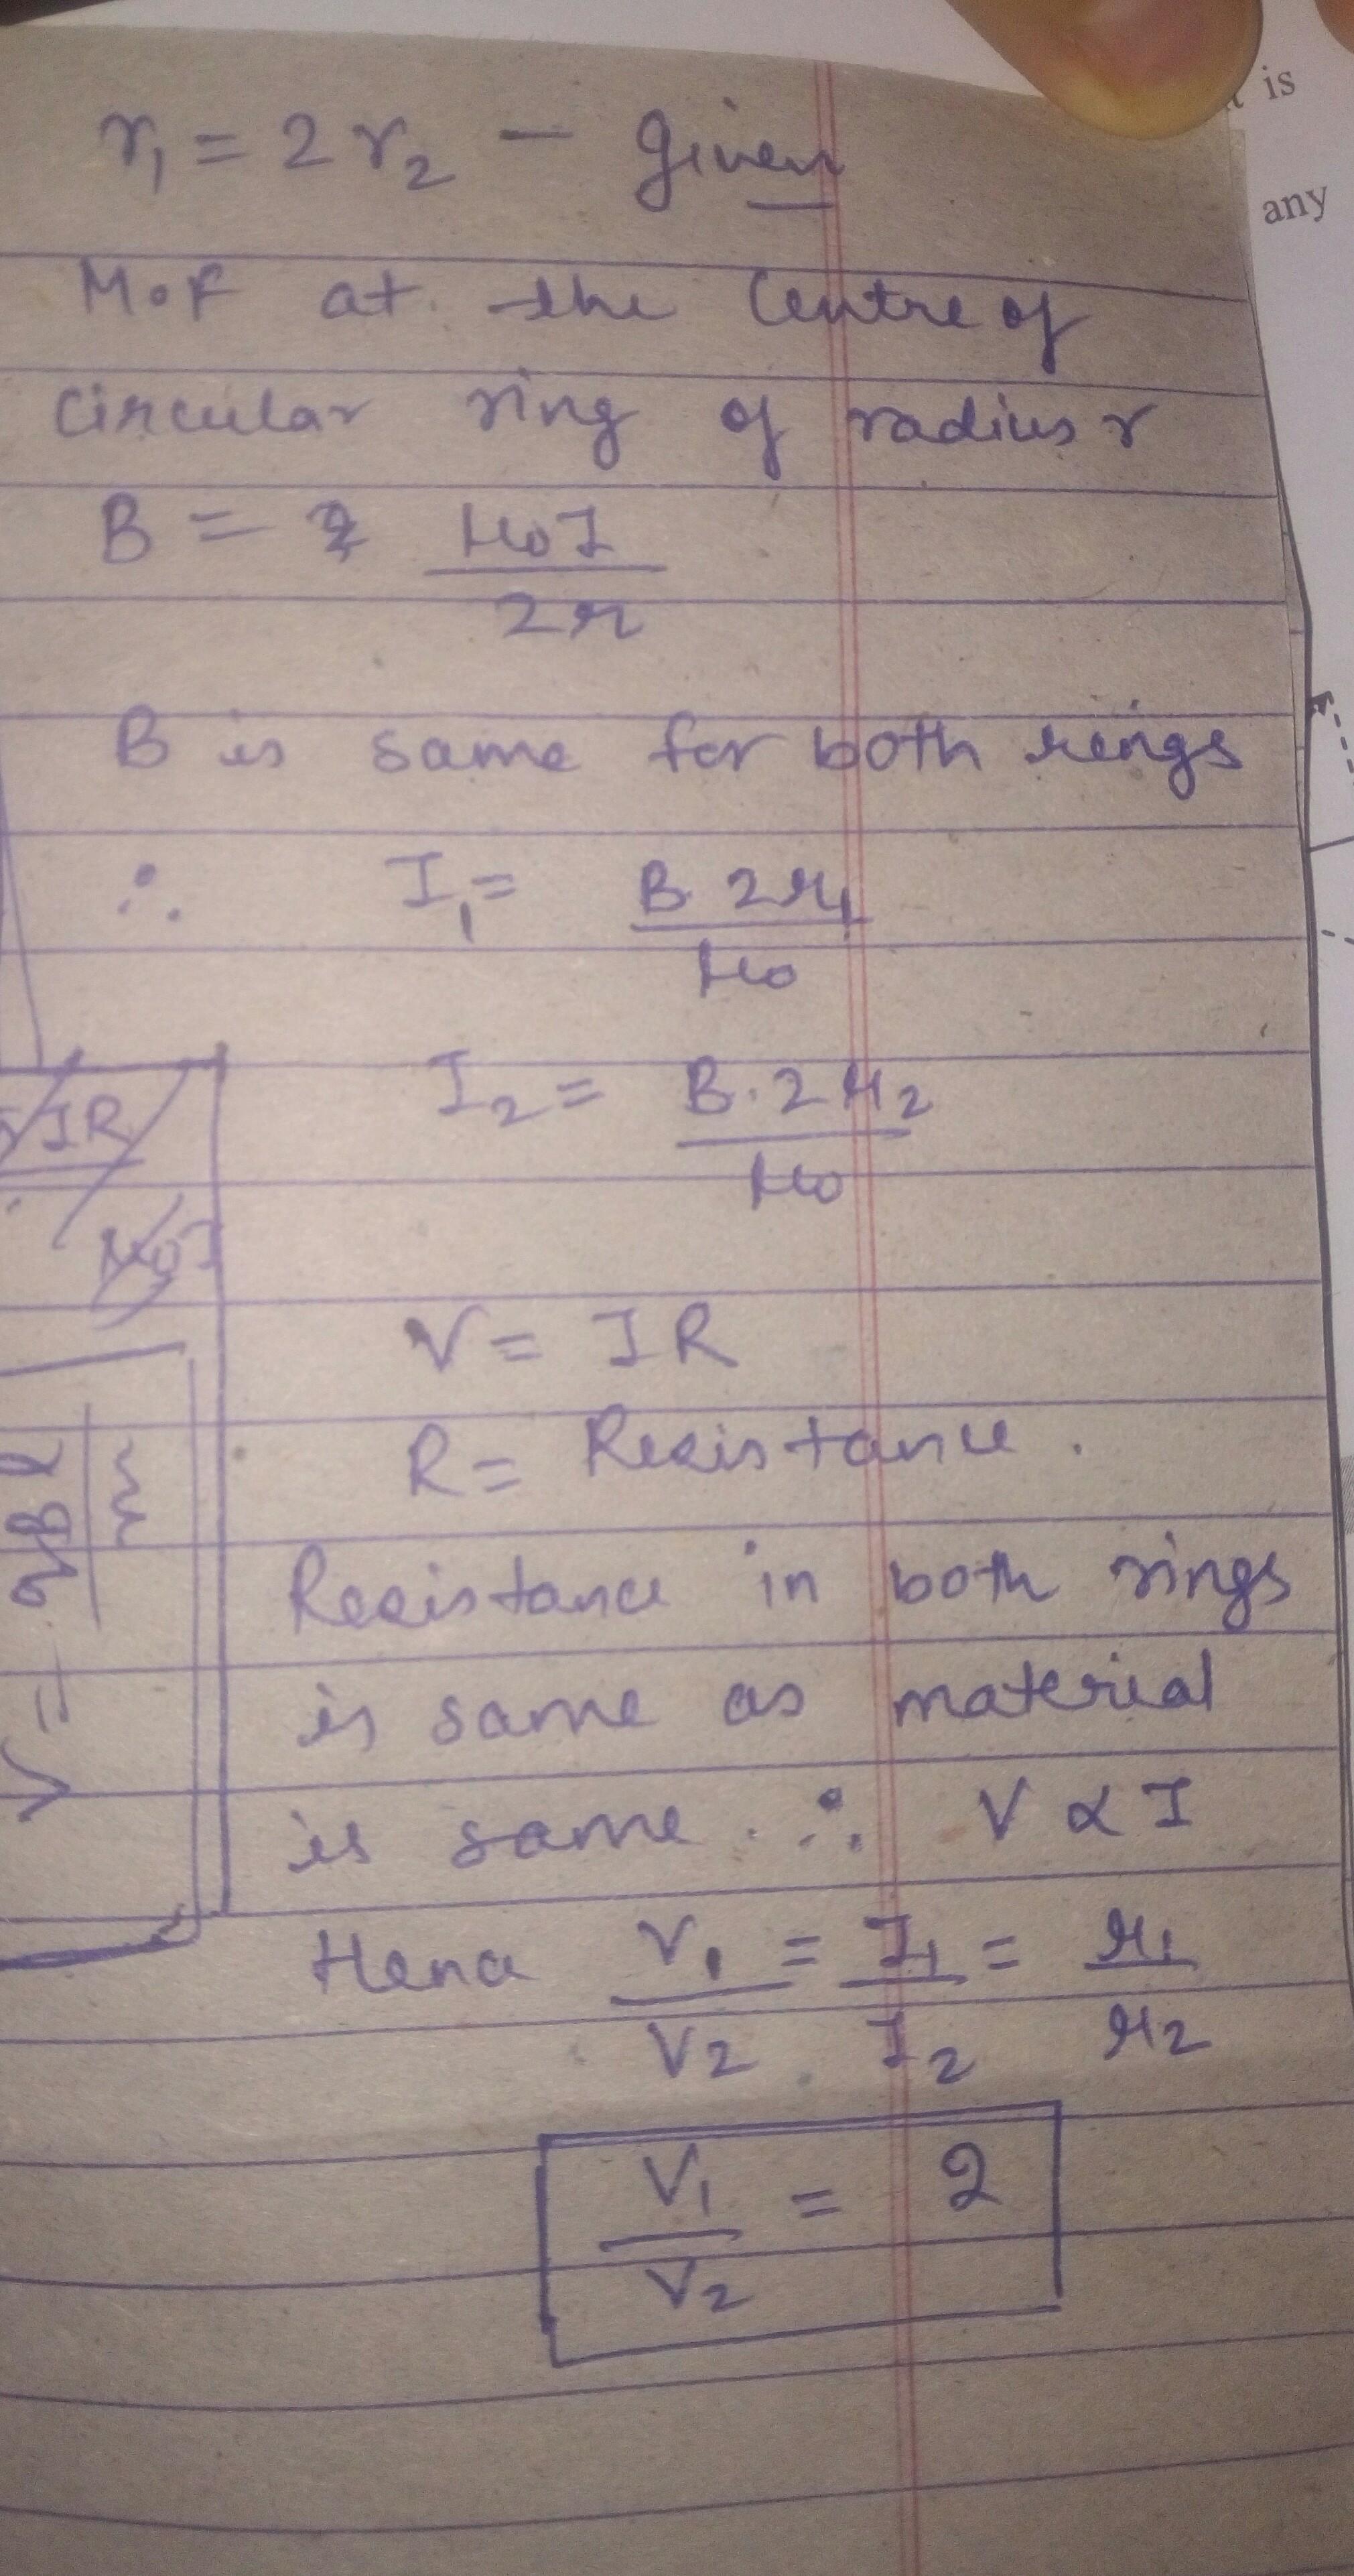 is
any
r₁ = 2r₂ - given
M.F at the Centre of
Circular ring of radius r
B = μ₀I
2r
B is same for both rings
∴ I₁ = B 2r₁
μ₀
I₂ = B.2r₂
μ₀
IR
μ₀I
V = IR
R = Resistance.
Resistance in both rings
is same as material
is same. ∴ V ∝ I
Hence V₁ = I₁ = r₁
V₂ I₂ r₂
V₁ = 2
V₂